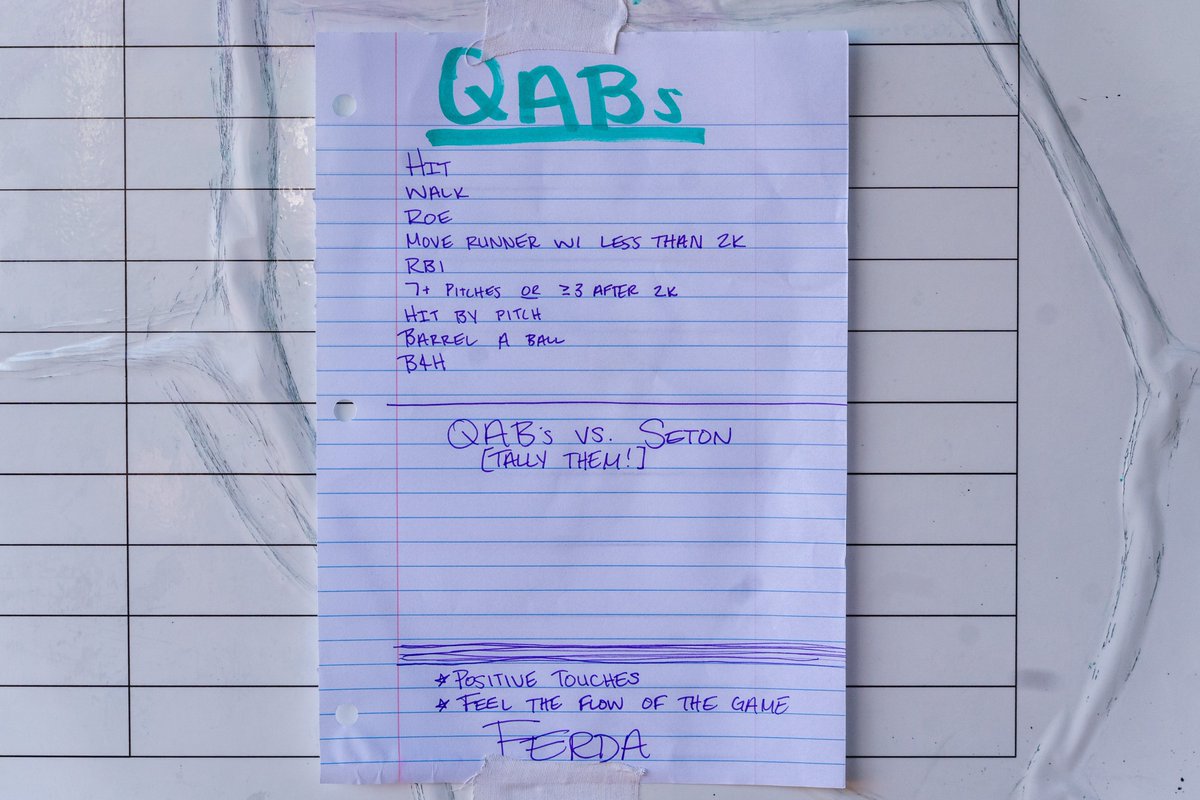 QABs
HIT
WALK
ROE
MOVE RUNNER W/ LESS THAN 2K
RBI
7+ PITCHES OR ≥3 AFTER 2K
HIT BY PITCH
BARREL A BALL
B4H
QAB's VS. SETON
[TALLY THEM!]
* POSITIVE TOUCHES
* FEEL THE FLOW OF THE GAME
FERDA